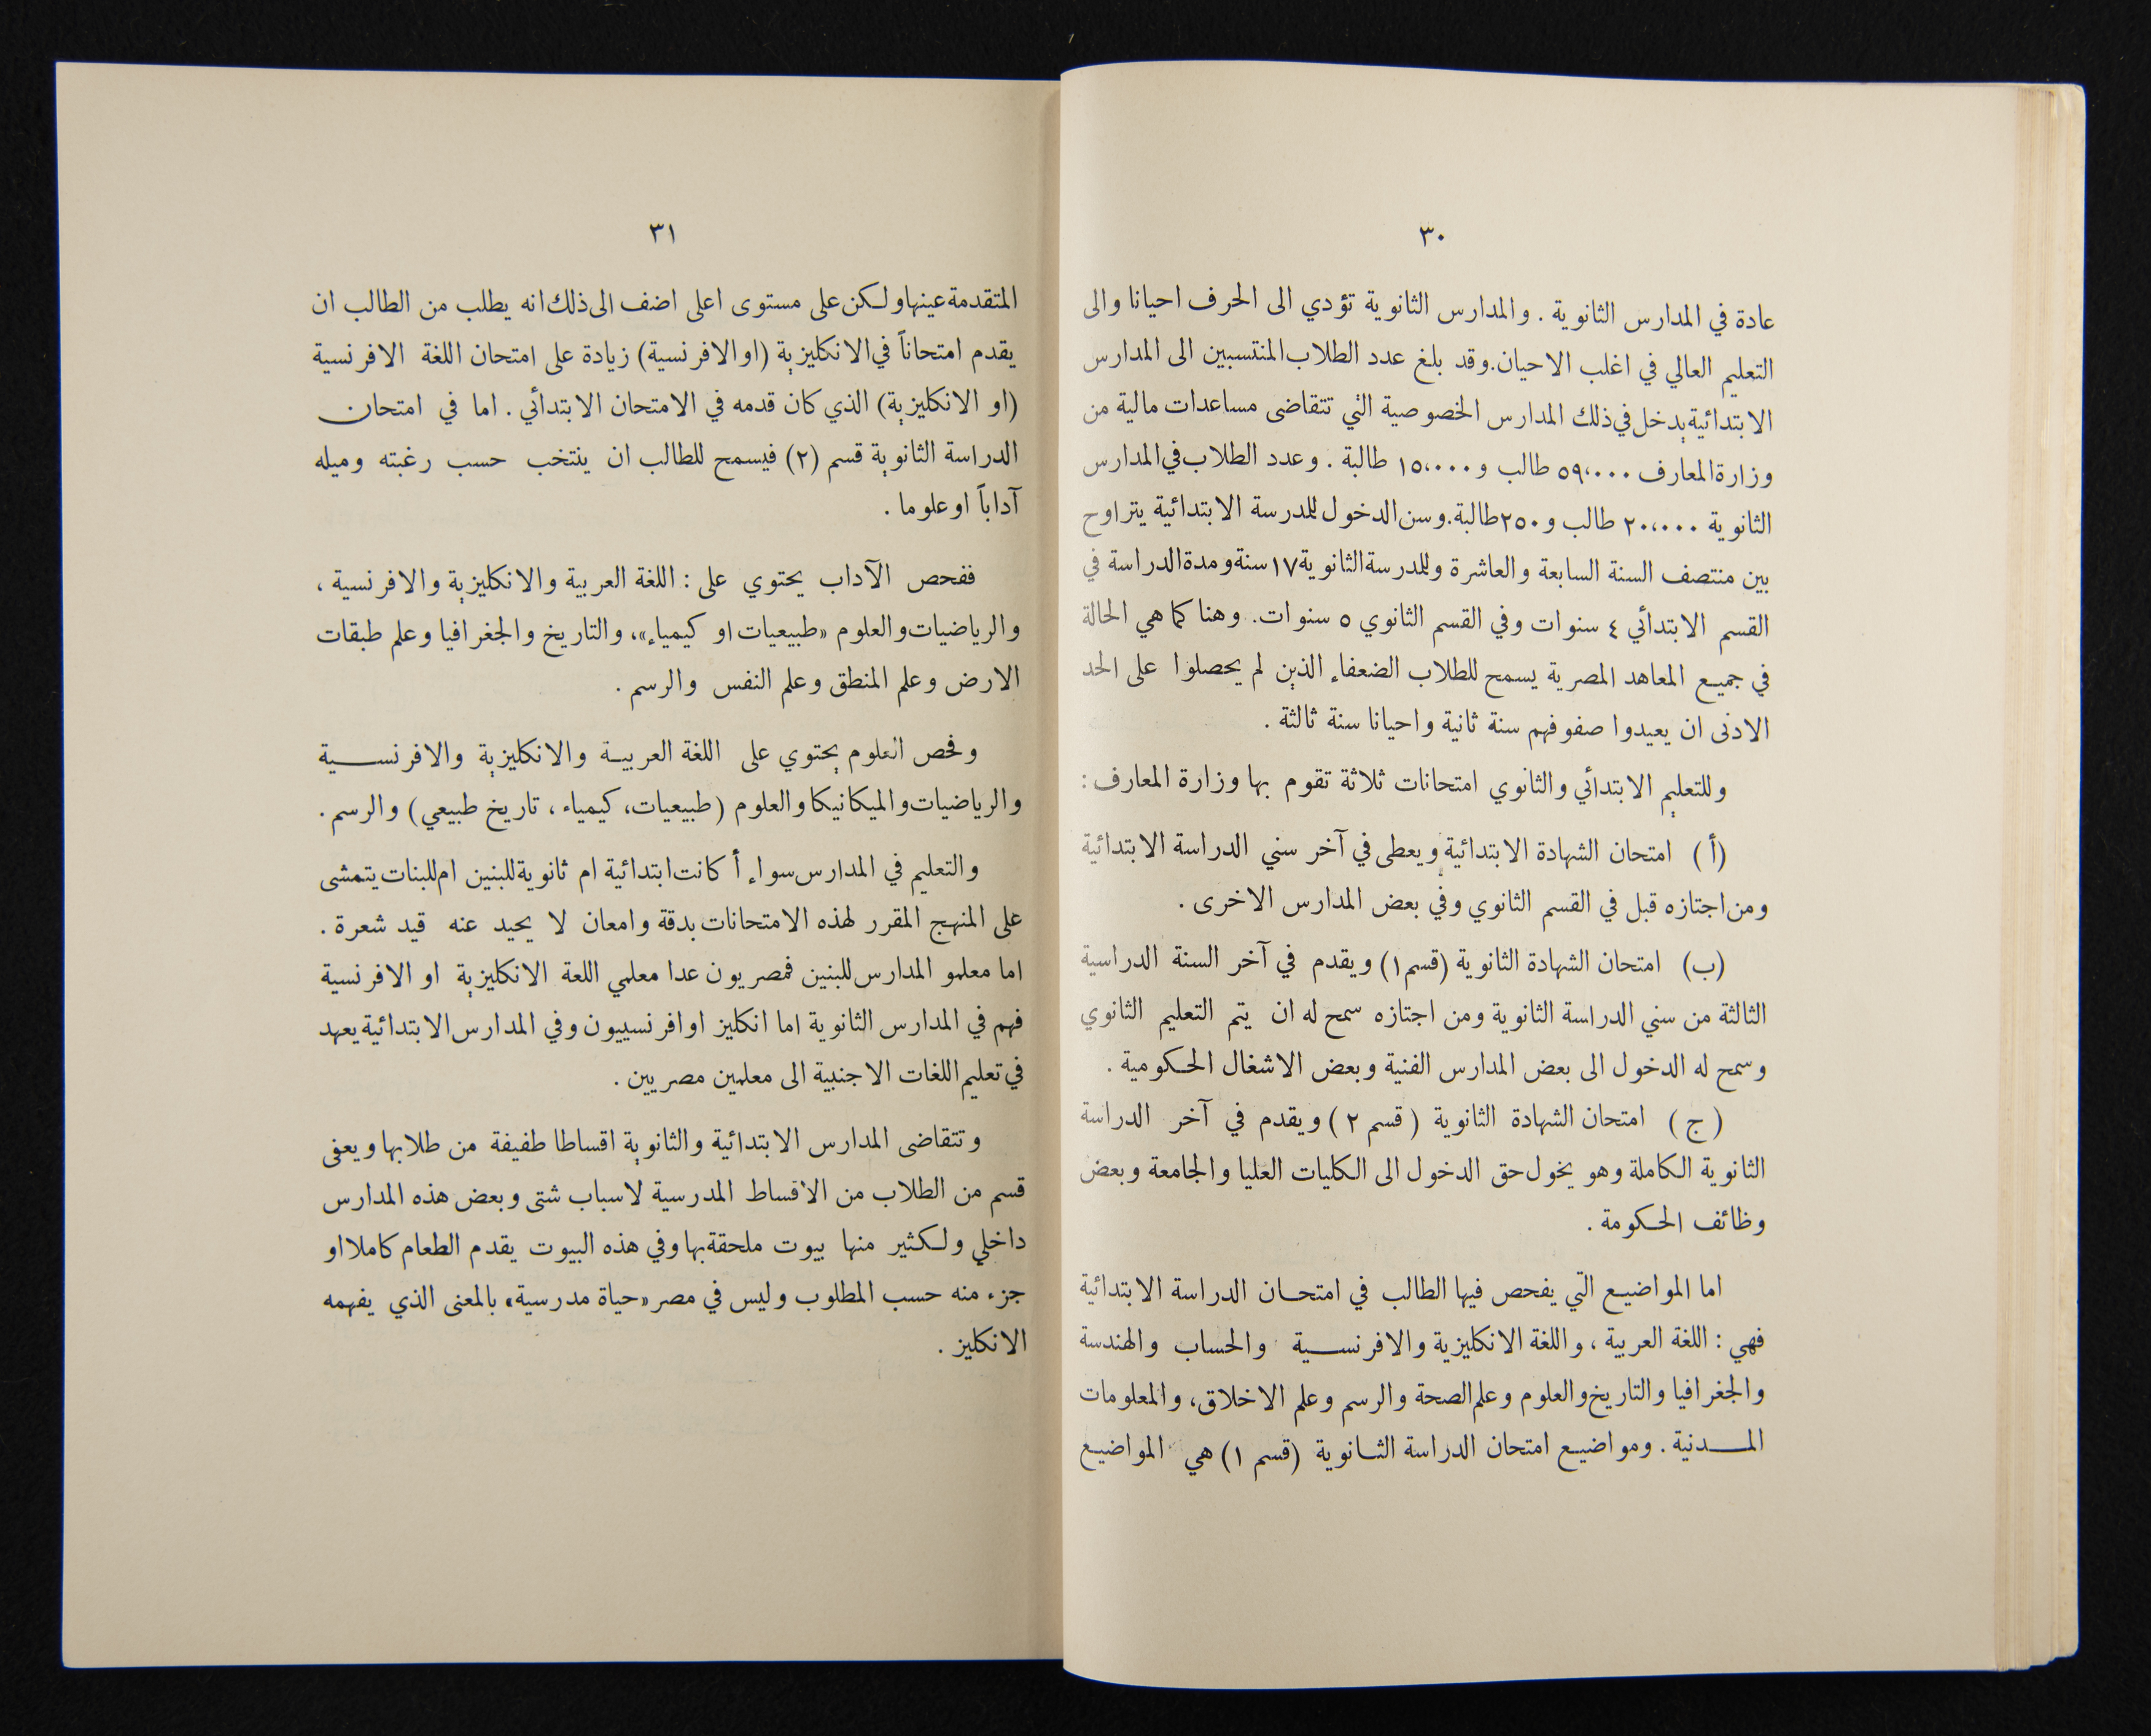 ٣٠
عادة في المدارس الثانوية . والمدارس الثانوية تؤدي الى الحرف احيانا والى
التعليم العالي في اغلب الاحيان. وقد بلغ عدد الطلاب المنتسبين الى المدارس
الابتدائية يدخل في ذلك المدارس الخصوصية التي تتقاضى مساعدات مالية من
وزارة المعارف ٥٩،٠٠٠ طالب و ١٥،٠٠٠ طالبة . وعدد الطلاب في المدارس
الثانوية ٢٠،٠٠٠ طالب و ٢٥٠ طالبة. وسن الدخول للمدرسة الابتدائية يتراوح
بين منتصف السنة السابعة والعاشرة وللمدرسة الثانوية ١٧ سنة ومدة الدراسة في
القسم الابتدائي ٤ سنوات وفي القسم الثانوي ٥ سنوات. وهنا كما هي الحالة
في جميع المعاهد المصرية يسمح للطلاب الضعفاء الذين لم يحصلوا على الحد
الادنى ان يعيدوا صفوفهم سنة ثانية واحيانا سنة ثالثة .
وللتعليم الابتدائي والثانوي امتحانات ثلاثة تقوم بها وزارة المعارف :
(أ) امتحان الشهادة الابتدائية ويعطى في آخر سني الدراسة الابتدائية
ومن اجتازه قبل في القسم الثانوي وفي بعض المدارس الاخرى .
(ب) امتحان الشهادة الثانوية (قسم ١) ويقدم في آخر السنة الدراسية
الثالثة من سني الدراسة الثانوية ومن اجتازه سمح له ان يتم التعليم الثانوي
وسمح له الدخول الى بعض المدارس الفنية وبعض الاشغال الحكومية .
(ج) امتحان الشهادة الثانوية (قسم ٢) ويقدم في آخر الدراسة
الثانوية الكاملة وهو يخول حق الدخول الى الكليات العليا والجامعة وبعض
وظائف الحكومة .
اما المواضيع التي يفحص فيها الطالب في امتحان الدراسة الابتدائية
فهي : اللغة العربية ، واللغة الانكليزية والافرنسية والحساب والهندسة
والجغرافيا والتاريخ والعلوم وعلم الصحة والرسم وعلم الاخلاق، والمعلومات
المدنية . ومواضيع امتحان الدراسة الثانوية (قسم ١) هي المواضيع
٣١
المتقدمة عينها ولكن على مستوى اعلى اضف الى ذلك انه يطلب من الطالب ان
يقدم امتحاناً في الانكليزية (او الافرنسية) زيادة على امتحان اللغة الافرنسية
(او الانكليزية) الذي كان قدمه في الامتحان الابتدائي . اما في امتحان
الدراسة الثانوية قسم (٢) فيسمح للطالب ان ينتخب حسب رغبته وميله
آداباً او علوما .
ففحص الآداب يحتوي على : اللغة العربية والانكليزية والافرنسية ،
والرياضيات والعلوم «طبيعيات او كيمياء»، والتاريخ والجغرافيا وعلم طبقات
الارض وعلم المنطق وعلم النفس والرسم .
وفحص العلوم يحتوي على اللغة العربية والانكليزية والافرنسية
والرياضيات والميكانيكا والعلوم (طبيعيات، كيمياء ، تاريخ طبيعي) والرسم .
والتعليم في المدارس سواء أ كانت ابتدائية ام ثانوية للبنين ام للبنات يتمشى
على المنهج المقرر لهذه الامتحانات بدقة وامعان لا يحيد عنه قيد شعرة .
اما معلمو المدارس للبنين فمصريون عدا معلمي اللغة الانكليزية او الافرنسية
فهم في المدارس الثانوية اما انكليز او افرنسييون وفي المدارس الابتدائية يعهد
في تعليم اللغات الاجنبية الى معلمين مصريين .
وتتقاضى المدارس الابتدائية والثانوية اقساطا طفيفة من طلابها ويعفى
قسم من الطلاب من الاقساط المدرسية لاسباب شتى وبعض هذه المدارس
داخلي ولكثير منها بيوت ملحقة بها وفي هذه البيوت يقدم الطعام كاملا او
جزء منه حسب المطلوب وليس في مصر «حياة مدرسية» بالمعنى الذي يفهمه
الانكليز .